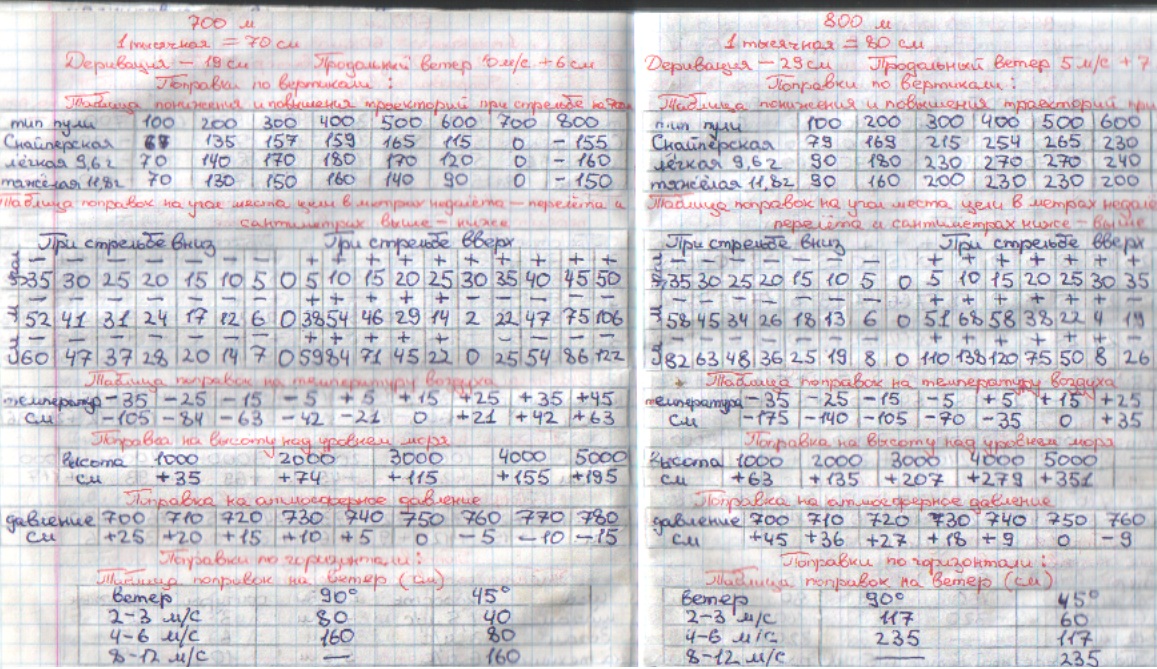 700 м
1 тысячная = 70 см
Деривация – 19 см Продольный ветер 10 м/с + 6 см
Поправки по вертикали :
Таблица понижения и повышения траекторий при стрельбе на
тип пули 100 200 300 400 500 600 700 800
Снайперская 135 157 159 165 115 0 – 155
лёгкая 9,6 г 70 140 170 180 170 120 0 – 160
тяжёлая 11,8 г 70 130 150 160 140 90 0 – 150
Таблица поправок на угол места цели в метрах недолёта – перелёта и
сантиметрах выше – ниже
При стрельбе вниз При стрельбе вверх
– – – – – – – + + + + + + + + + +
35 30 25 20 15 10 5 0 5 10 15 20 25 30 35 40 45 50
– – – – – – – + + + + + – – – – –
52 41 31 24 17 12 6 0 38 54 46 29 14 2 22 47 75 106
– – – – – – – + + + + + – – – –
60 47 37 28 20 14 7 0 59 84 71 45 22 0 25 54 86 122
Таблица поправок на температуру воздуха
температур – 35 – 25 – 15 – 5 + 5 + 15 + 25 + 35 + 45
см – 105 – 84 – 63 – 42 – 21 0 + 21 + 42 + 63
Поправка на высоту над уровнем моря
высота 1000 2000 3000 4000 5000
см + 35 + 74 + 115 + 155 + 195
Поправка на атмосферное давление
давление 700 710 720 730 740 750 760 770 780
см + 25 + 20 + 15 + 10 + 5 0 – 5 – 10 – 15
Поправки по горизонтали :
Таблица поправок на ветер (см)
ветер 90° 45°
2–3 м/с 80 40
4–6 м/с 160 80
8–12 м/с — 160
800 м
1 тысячная = 80 см
Деривация – 29 см Продольный ветер 5 м/с + 7
Поправки по вертикали :
Таблица понижения и повышения траекторий при
тип пули 100 200 300 400 500 600
Снайперская 79 169 215 254 265 230
лёгкая 9,6 г 90 180 230 270 270 240
тяжёлая 11,8 г 90 160 200 230 230 200
Таблица поправок на угол места цели в метрах недолё
перелёта и сантиметрах ниже – выше
При стрельбе вниз При стрельбе вверх
– – – – – – – + + + + + + +
35 30 25 20 15 10 5 0 5 10 15 20 25 30 35
– – – – – – – + + + + + + –
58 45 34 26 18 13 6 0 51 68 58 38 22 4 19
– – – – – – – + + + + + + –
82 63 48 36 25 19 8 0 110 138 120 75 50 8 26
Таблица поправок на температуру воздуха
температура – 35 – 25 – 15 – 5 + 5 + 15 + 25
см – 175 – 140 – 105 – 70 – 35 0 + 35
Поправка на высоту над уровнем моря
высота 1000 2000 3000 4000 5000
см + 63 + 135 + 207 + 279 + 351
Поправка на атмосферное давление
давление 700 710 720 730 740 750 760
см + 45 + 36 + 27 + 18 + 9 0 – 9
Поправки по горизонтали :
Таблица поправок на ветер (см)
ветер 90° 45°
2–3 м/с 117 60
4–6 м/с 235 117
8–12 м/с — 235